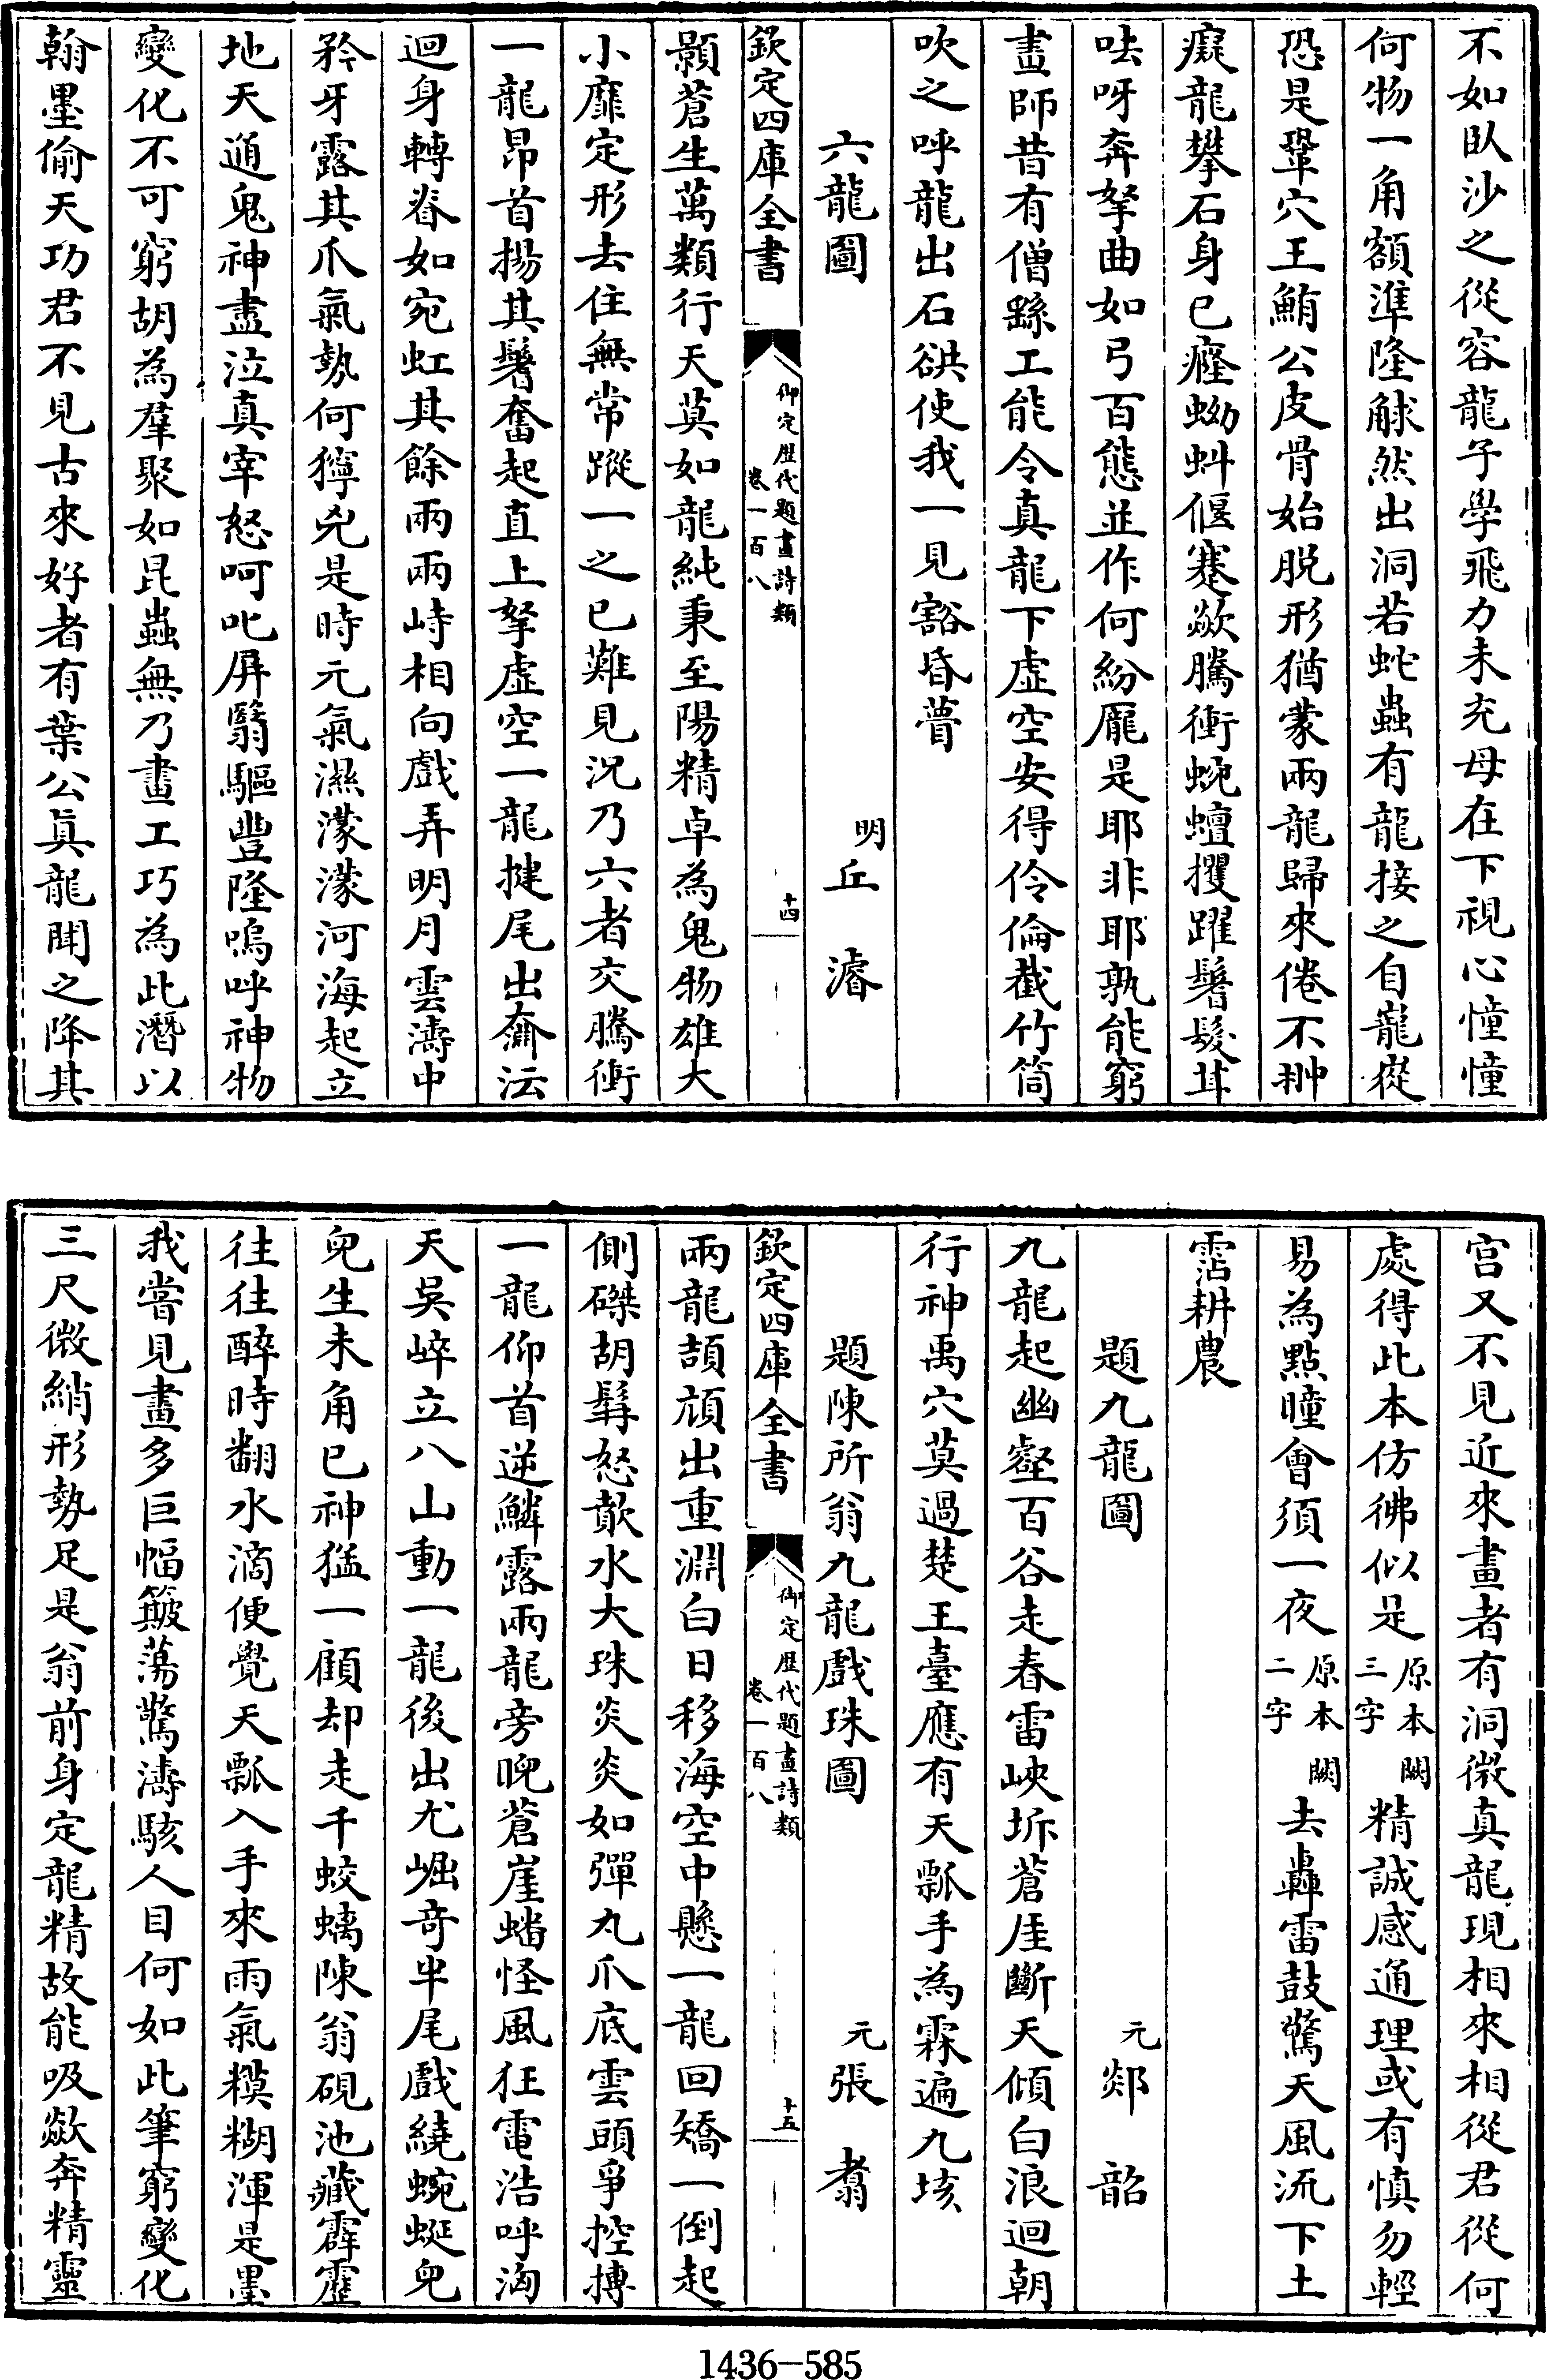 不如臥沙之從容龍子學飛力未充母在下視心憧憧
何物一角額準隆觩然出洞若蛇蟲有龍接之自巃嵷
恐是鞏穴王鮪公皮骨始脱形猶蒙兩龍歸來倦不翀
癡龍攀石身已癃蚴蚪偃蹇歘騰衝蜿蟺攫躍鬐髮茸
呿呀奔拏曲如弓百態並作何紛厖是耶非耶孰能窮
畫師昔有僧繇工能令真龍下虚空安得伶倫截竹筒
吹之呼龍出石谼使我一見豁昏瞢
六龍圖
明丘濬
欽定四庫全書
御定歴代題畫詩類
卷一百八
十四
顥蒼生萬類行天莫如龍純秉至陽精卓為鬼物雄大
小靡定形去住無常蹤一之已難見況乃六者交騰衝
一龍昂首揚其鬐奮起直上拏虚空一龍揵尾出奫沄
迴身轉脊如宛虹其餘兩兩峙相向戲弄明月雲濤中
矜牙露其爪氣勢何獰兇是時元氣濕濛濛河海起立
地天通鬼神盡泣真宰怒呵叱屏翳驅豐隆嗚呼神物
變化不可窮胡為羣聚如昆蟲無乃畫工巧為此潛以
翰墨偷天功君不見古來好者有葉公眞龍聞之降其
宫又不見近來畫者有洞微真龍現相來相從君從何
處得此本仿彿似是原本闕三字精誠感通理或有慎勿輕
易為點瞳會須一夜原本闕二字去轟雷鼓驚天風流下土
霑耕農
題九龍圖
元郯韶
九龍起幽壑百谷走春雷峽坼蒼厓斷天傾白浪迴朝
行神禹穴莫過楚王臺應有天瓢手為霖遍九垓
題陳所翁九龍戲珠圖
元張翥
欽定四庫全書
御定歴代題畫詩類
卷一百八
十五
兩龍頡頏出重淵白日移海空中懸一龍回矯一倒起
側磔胡髯怒歕水大珠炎炎如彈丸爪底雲頭爭控摶
一龍仰首逆鱗露兩龍旁睨蒼崖蟠怪風狂電浩呼洶
天吳崪立八山動一龍後出尤崛奇半尾戲繞蜿蜒兒
兒生未角已神猛一顧却走千蛟螭陳翁硯池藏霹靂
往往醉時翻水滴便覺天瓢入手來雨氣模糊渾是墨
我嘗見畫多巨幅簸蕩驚濤駭人目何如此筆窮變化
三尺微綃形勢足是翁前身定龍精故能吸歘奔精靈
1436-585